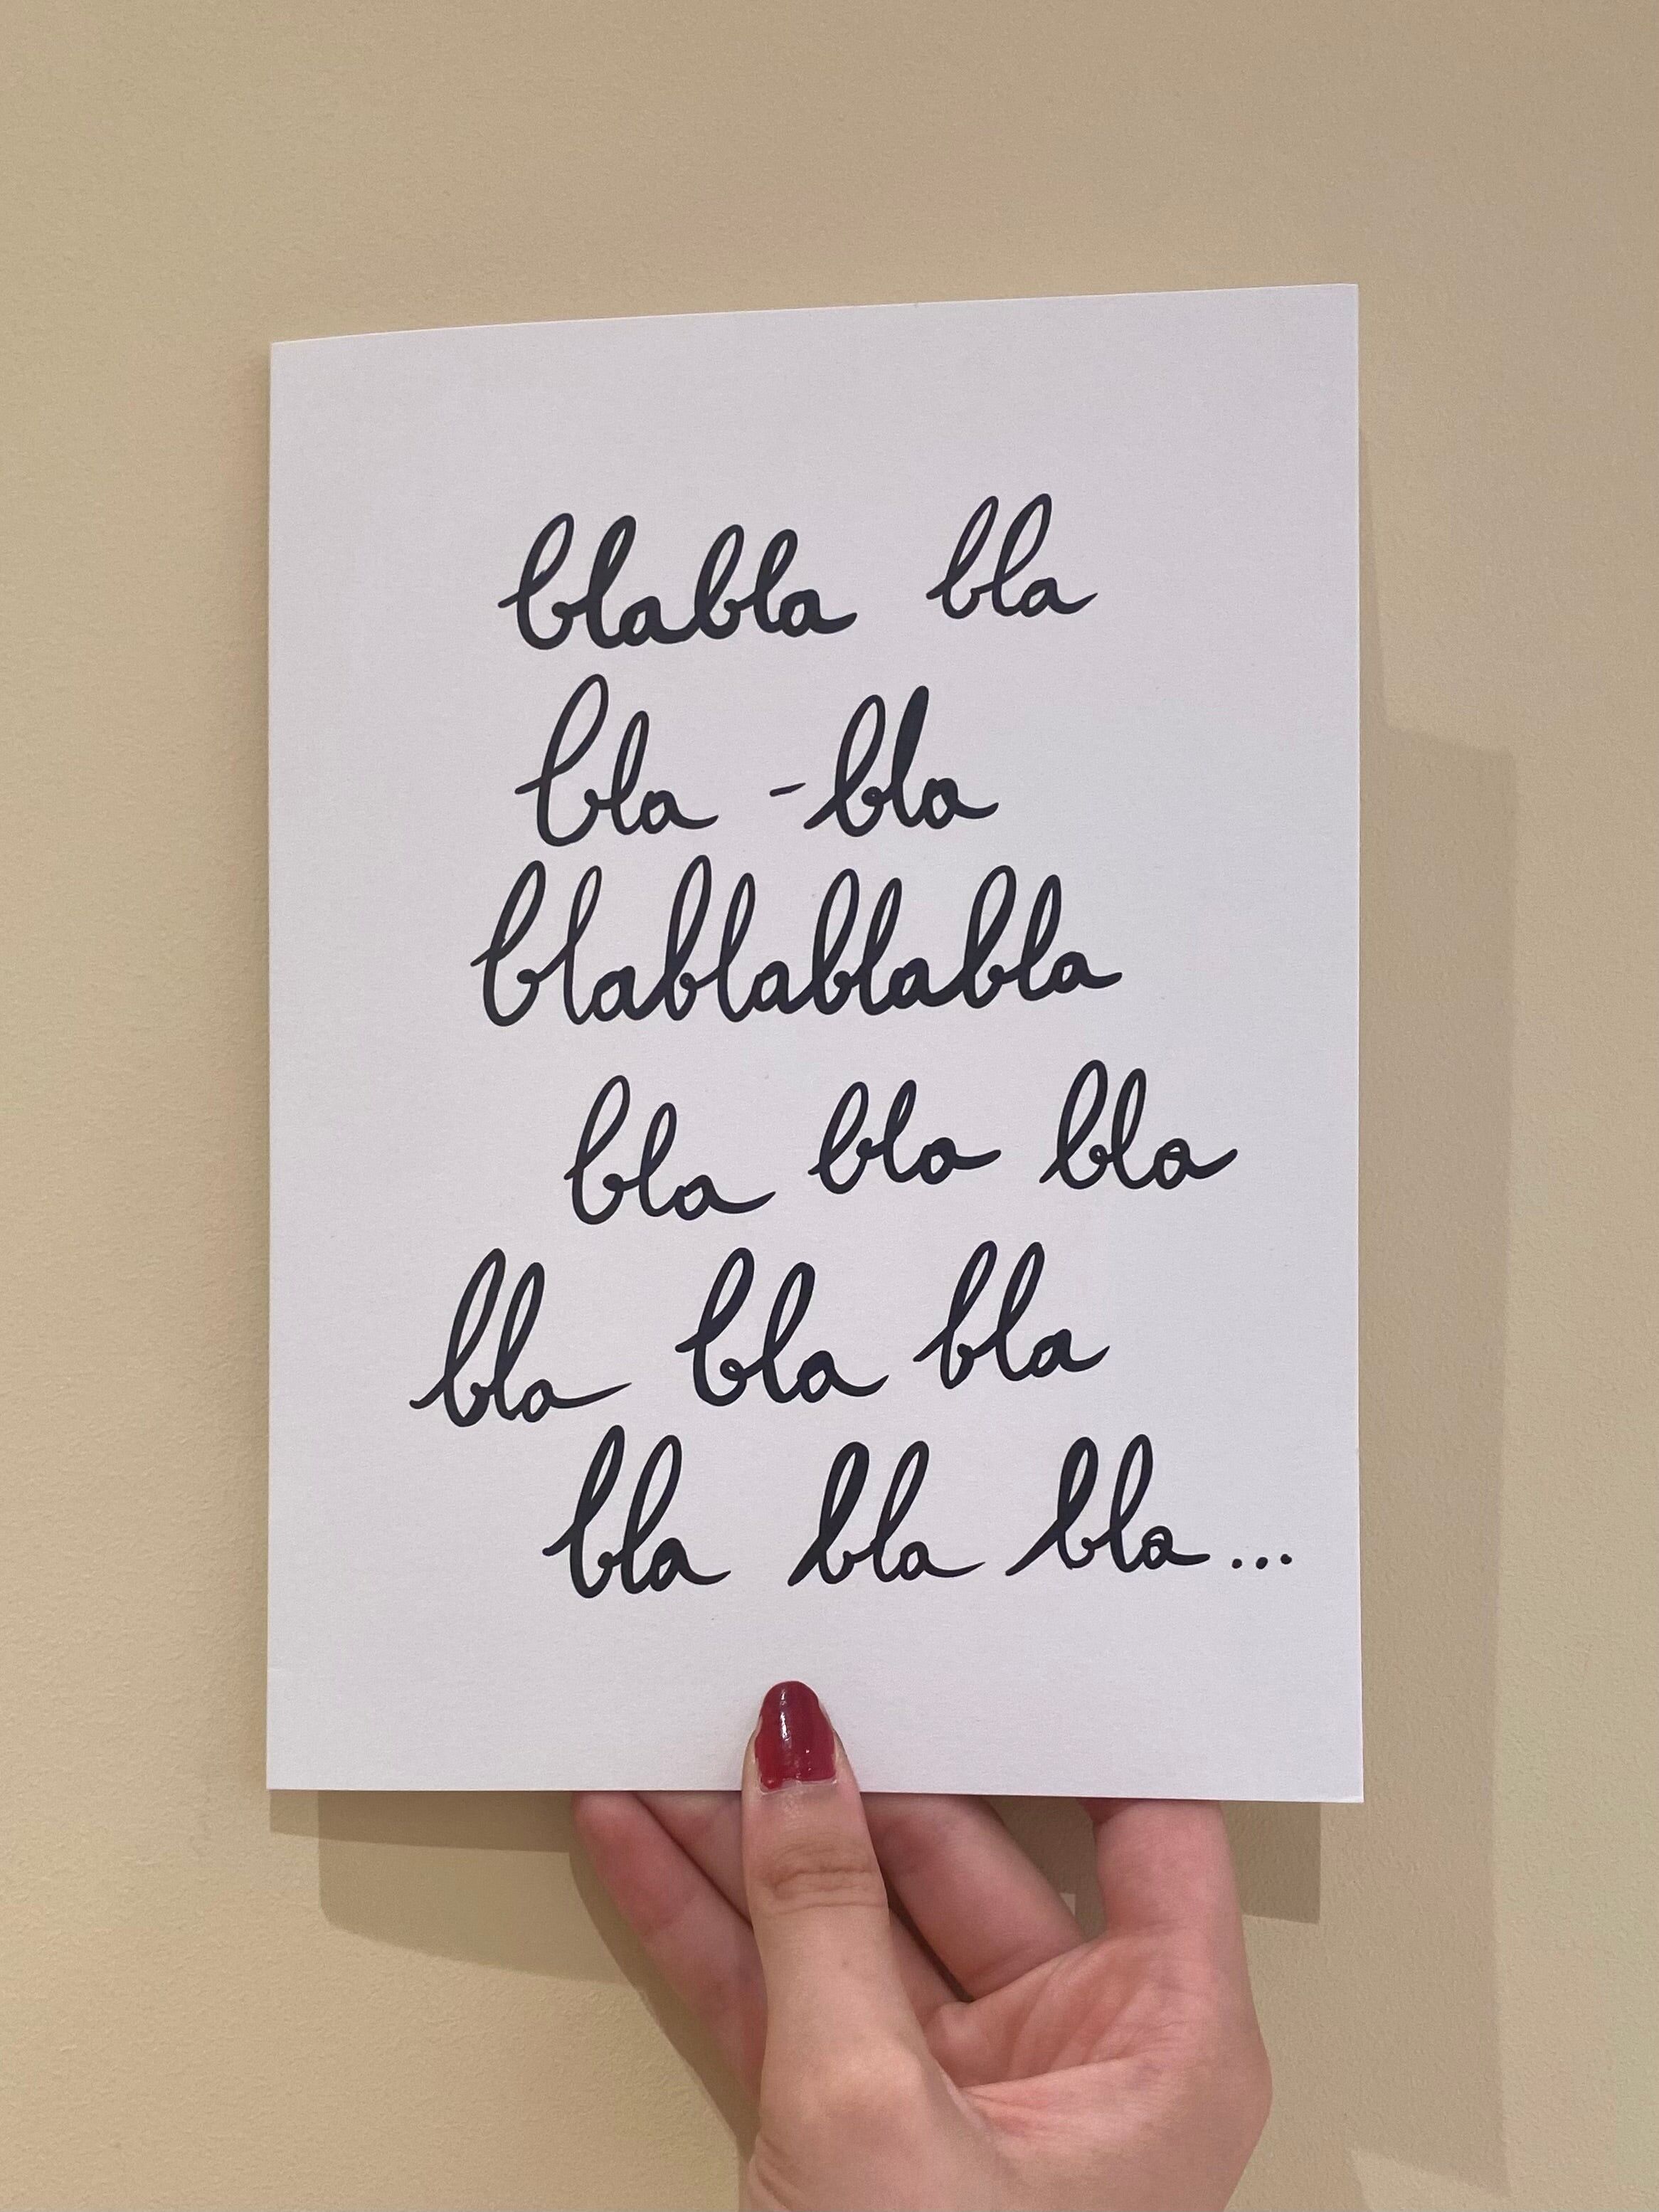 blabla bla
bla -bla
blablablabla
bla bla bla
bla bla bla
bla bla bla...